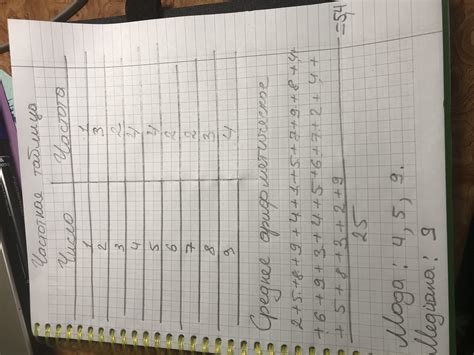 Частотная таблица
Число Частота
1 1
2 3
3 2
4 4
5 4
6 2
7 2
8 3
9 4
Среднее арифметическое
2+5+8+9+4+1+5+7+9+8+4+
+6+9+3+4+5+6+7+2+4+
+5+8+3+2+9 =5,4
25
Мода: 4, 5, 9.
Медиана: 9